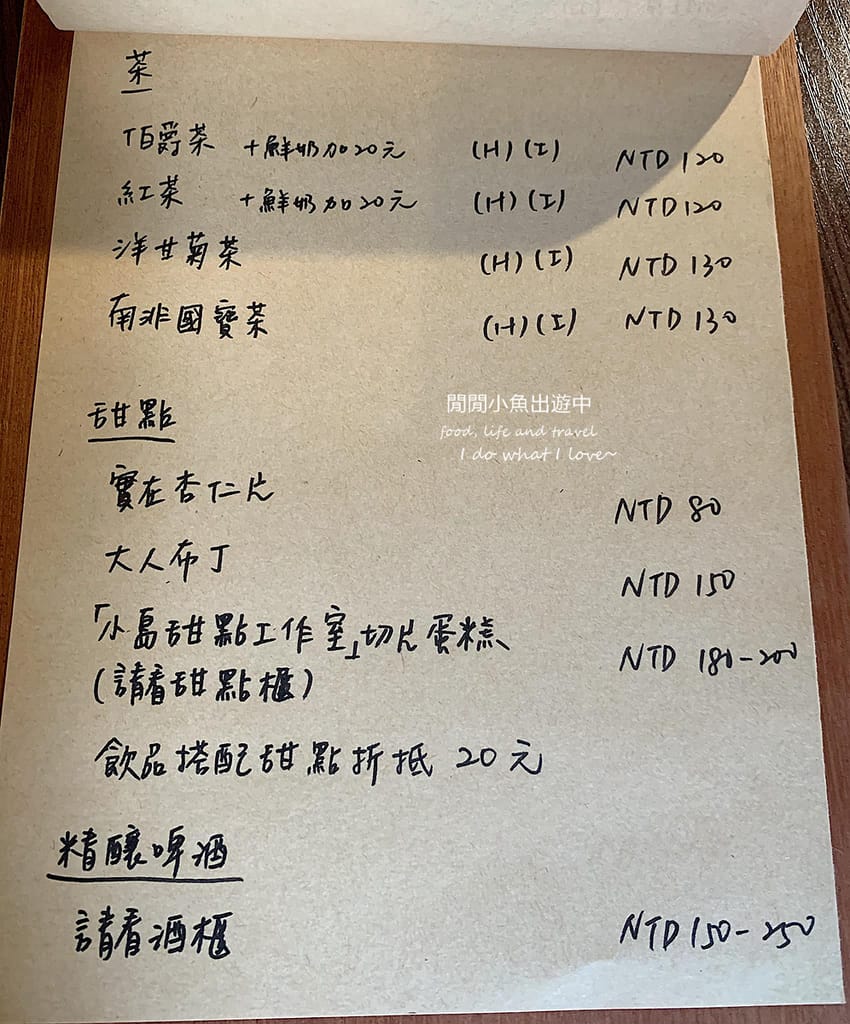 茶
伯爵茶 +鮮奶加20元 (H)(I) NTD 120
紅茶 +鮮奶加20元 (H)(I) NTD 120
洋甘菊茶 (H)(I) NTD 130
南非國寶茶 (H)(I) NTD 130
甜點
閒閒小魚出遊中
food, life and travel
I do what I love~
實在杏仁片 NTD 80
大人布丁 NTD 150
「小島甜點工作室」切片蛋糕 NTD 180-200
(請看甜點櫃)
飲品搭配甜點折抵 20元
精釀啤酒
請看酒櫃 NTD 150-250